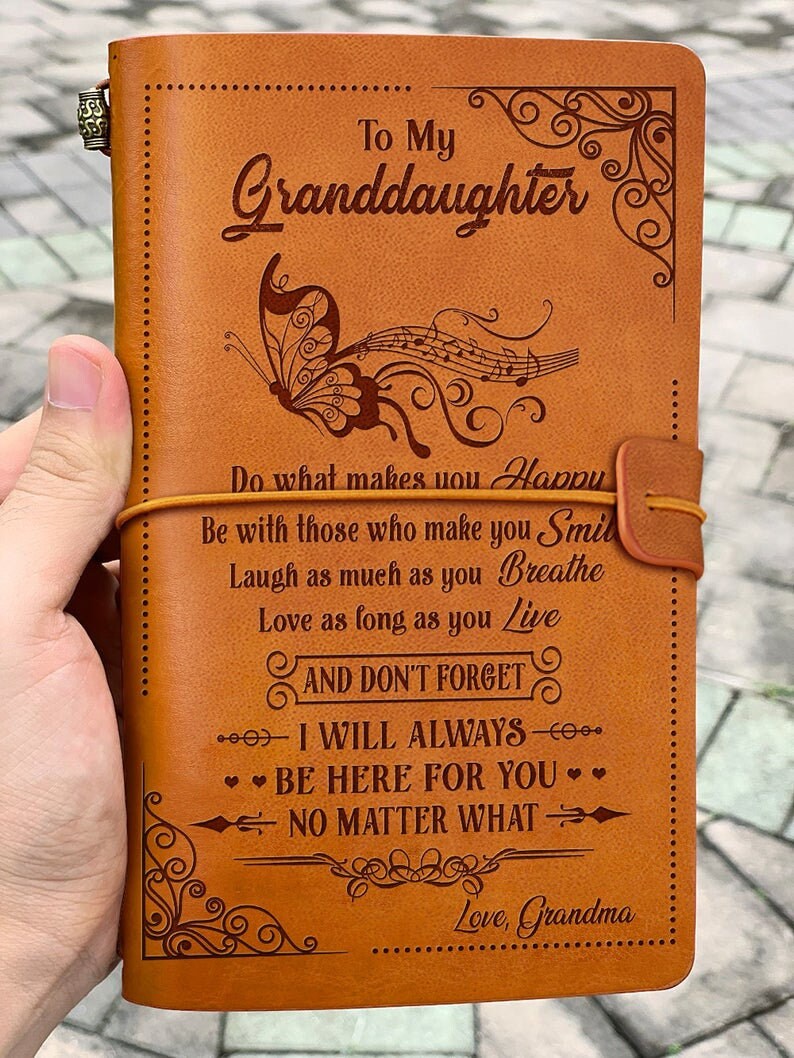 To My
Granddaughter
Do what makes you Happy
Be with those who make you Smil
Laugh as much as you Breathe
Love as long as you Live
AND DON'T FORGET
I WILL ALWAYS
BE HERE FOR YOU
NO MATTER WHAT
Love, Grandma